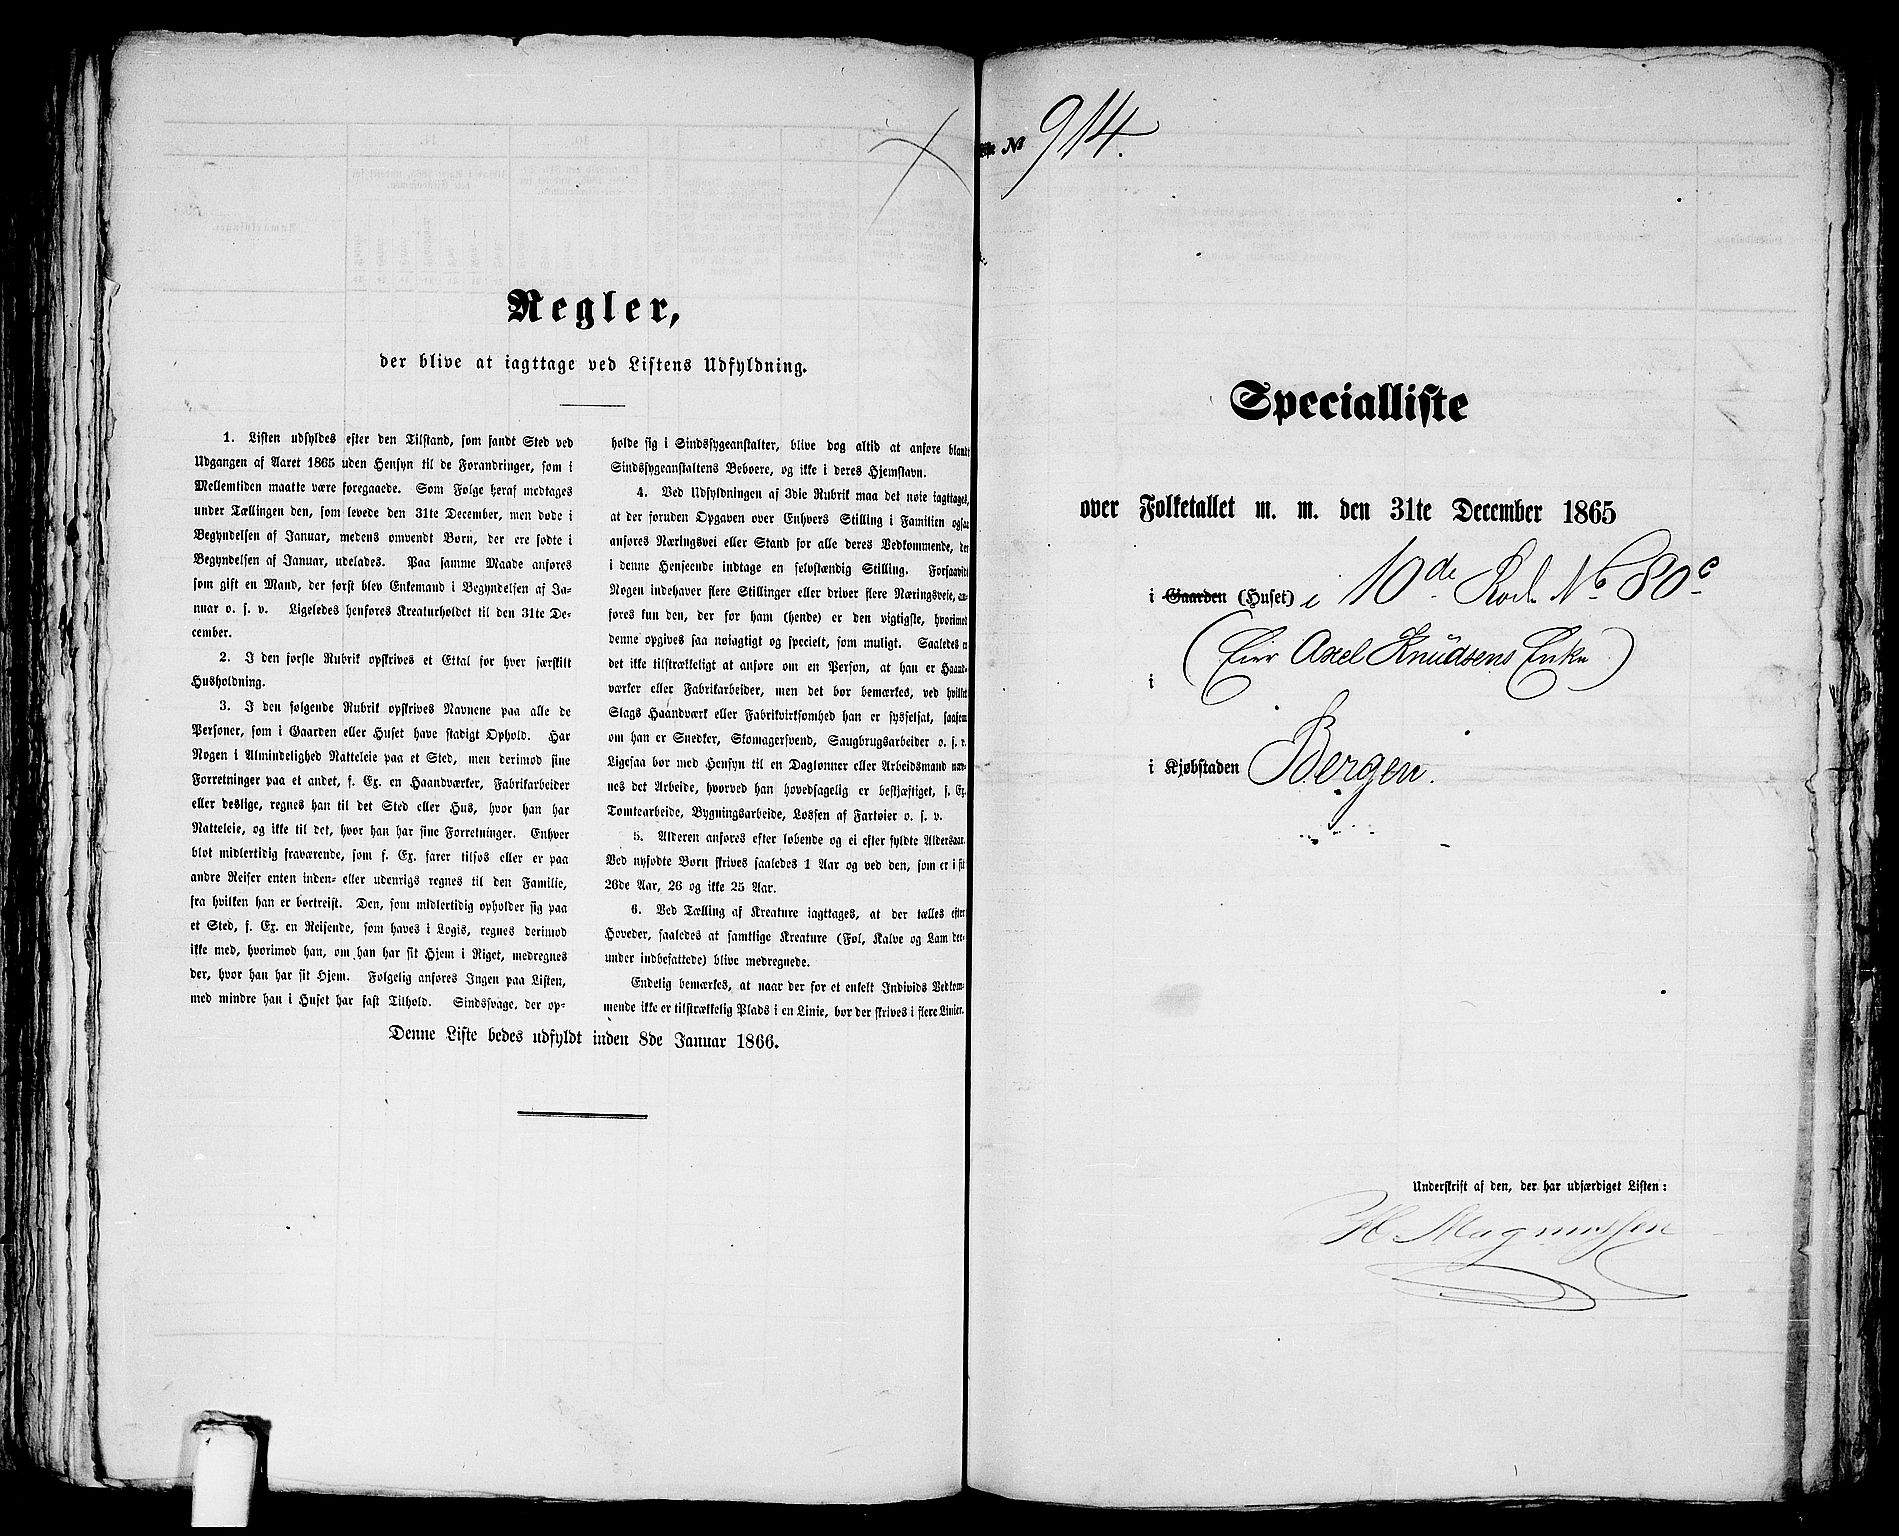 Regler,
der blive at iagttage ved Listens Udfyldning.
1. Listen udfyldes efter den Tilstand, som fandt Sted ved
Udgangen af Aaret 1865 uden Hensyn til de Forandringer, som i
Mellemtiden maatte være foregaaede. Som Følge heraf medtages
under Tællingen den, som levede den 31te December, men døde i
Begyndelsen af Januar, medens omvendt Børn, der ere fødte i
Begyndelsen af Januar, udelades. Paa samme Maade anføres
som gift en Mand, der først blev Enkemand i Begyndelsen af Ja-
nuar o. s. v. Ligeledes henføres Kreaturholdet til den 31te De-
cember.
2. I den første Rubrik opskrives et Ettal for hver særskilt
Husholdning.
3. I den følgende Rubrik opskrives Navnene paa alle de
Personer, som i Gaarden eller Huset have stadigt Ophold. Har
Nogen i Almindelighed Natteleie paa et Sted, men derimod sine
Forretninger paa et andet, f. Ex. en Haandværker, Fabrikarbeider
eller deslige, regnes han til det Sted eller Hus, hvor han har
Natteleie, og ikke til det, hvor han har sine Forretninger. Enhver
blot midlertidig fraværende, som f. Ex. farer tilsøs eller er paa
andre Reiser enten inden- eller udenrigs regnes til den Familie,
fra hvilken han er bortreist. Den, som midlertidig opholder sig paa
et Sted, f. Ex. en Reisende, som haves i Logis, regnes derimod
ikke med, hvorimod han, om han har sit Hjem i Riget, medregnes
der, hvor han har sit Hjem. Følgelig anføres Ingen paa Listen,
med mindre han i Huset har fast Tilhold. Sindssvage, der op-
holde sig i Sindssygeanstalter, blive dog altid at anføre blandt
Sindssygeanstaltens Beboere, og ikke i deres Hjemstavn.
4. Ved Udfyldningen af 3die Rubrik maa det nøie iagttages,
at der foruden Opgaven over Enhvers Stilling i Familien ogsaa
anføres Næringsvei eller Stand for alle deres Vedkommende, der
i denne Henseende indtage en selvstændig Stilling. Forsaavidt
Nogen indehaver flere Stillinger eller driver flere Næringsveie, an-
føres kun den, der for ham (hende) er den vigtigste, hvorimod
denne opgives saa nøiagtigt og specielt, som muligt. Saaledes er
det ikke tilstrækkeligt at anføre om en Person, at han er Haand-
værker eller Fabrikarbeider, men det bør bemærkes, ved hvilket
Slags Haandværk eller Fabrikvirksomhed han er sysselsat, saasom
om han er Snedker, Skomagersvend, Saugbrugsarbeider o. s. v.
Ligesaa bør med Hensyn til en Daglønner eller Arbeidsmand næv-
nes det Arbeide, hvorved han hovedsagelig er beskjæftiget, f. Ex.
Tomtearbeide, Bygningsarbeide, Lossen af Fartøier o. s. v.
5. Alderen anføres efter løbende og ei efter fyldte Aldersaar.
Ved nyfødte Børn skrives saaledes 1 Aar og ved den, som er i sit
26de Aar, 26 og ikke 25 Aar.
6. Ved Tælling af Kreature iagttages, at der tælles efter
Hoveder, saaledes at samtlige Kreature (Føl, Kalve og Lam der-
under indbefattede) blive medregnede.
Endelig bemærkes, at naar der for et enkelt Individs Vedkom-
mende ikke er tilstrækkelig Plads i en Linie, bør der skrives i flere Linier.
Denne Liste bedes udfyldt inden 8de Januar 1866.
№ 914.
Specialliste
over Folketallet m. m. den 31te December 1865
i Gaarden (Huset) i 10de Rode No 80c
(Eier Axel Knudsens Enke)
i
i Kjøbstaden Bergen.
Underskrift af den, der har udfærdiget Listen:
H. Magnussen